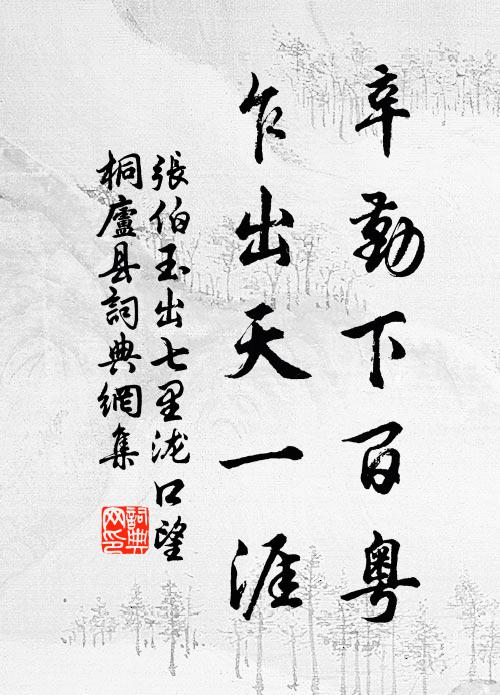 辛勤下百粤
乍出天一涯
張伯玉出七里泷口望
桐廬县詞典網集
詞典
网印